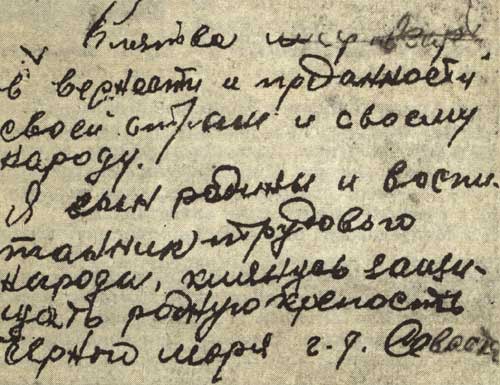 Клятва
в верности и преданности
своей стране и своему
народу.
Я сын родины и воспи-
танник трудового
народа, клянусь защи-
щать родную крепость
Черного моря г. Севас